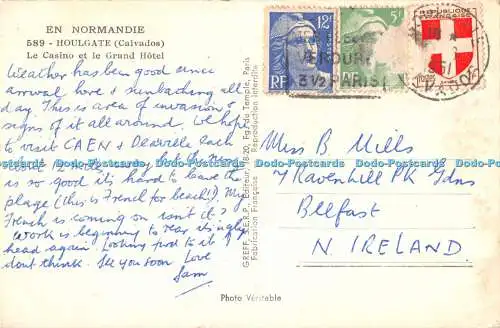 EN NORMANDIE
589 - HOULGATE (Calvados)
Le Casino et le Grand Hôtel
Weather has been good since
arrival here & sunbathing all
day. This is area of invasion &
signs of it all around. We hope
to visit CAEN & Deauville each
is so good its hard to leave the
plage (this is French for beach!). My
French is coming on isn't it?
Work is beginning to rear its ugly
head again. Looking fwd to it I
dont think. See you soon Love
Sam
GREFF, S.E.R.P., Editeur, 18-20, Fg. du Temple, Paris
Fabrication Française Reproduction interdite
Photo Véritable
12F
RF
5F
VERDURE
3½ PARIS
REPUBLIQUE
FRANÇAISE
POSTES
Miss B Mills
7 Ravenhill PK Gdns
Belfast
N. IRELAND.
Dodo-Postcards